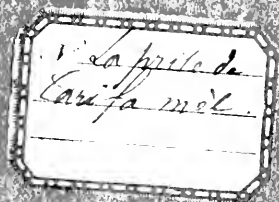 La prise de
Tarifa mèl.